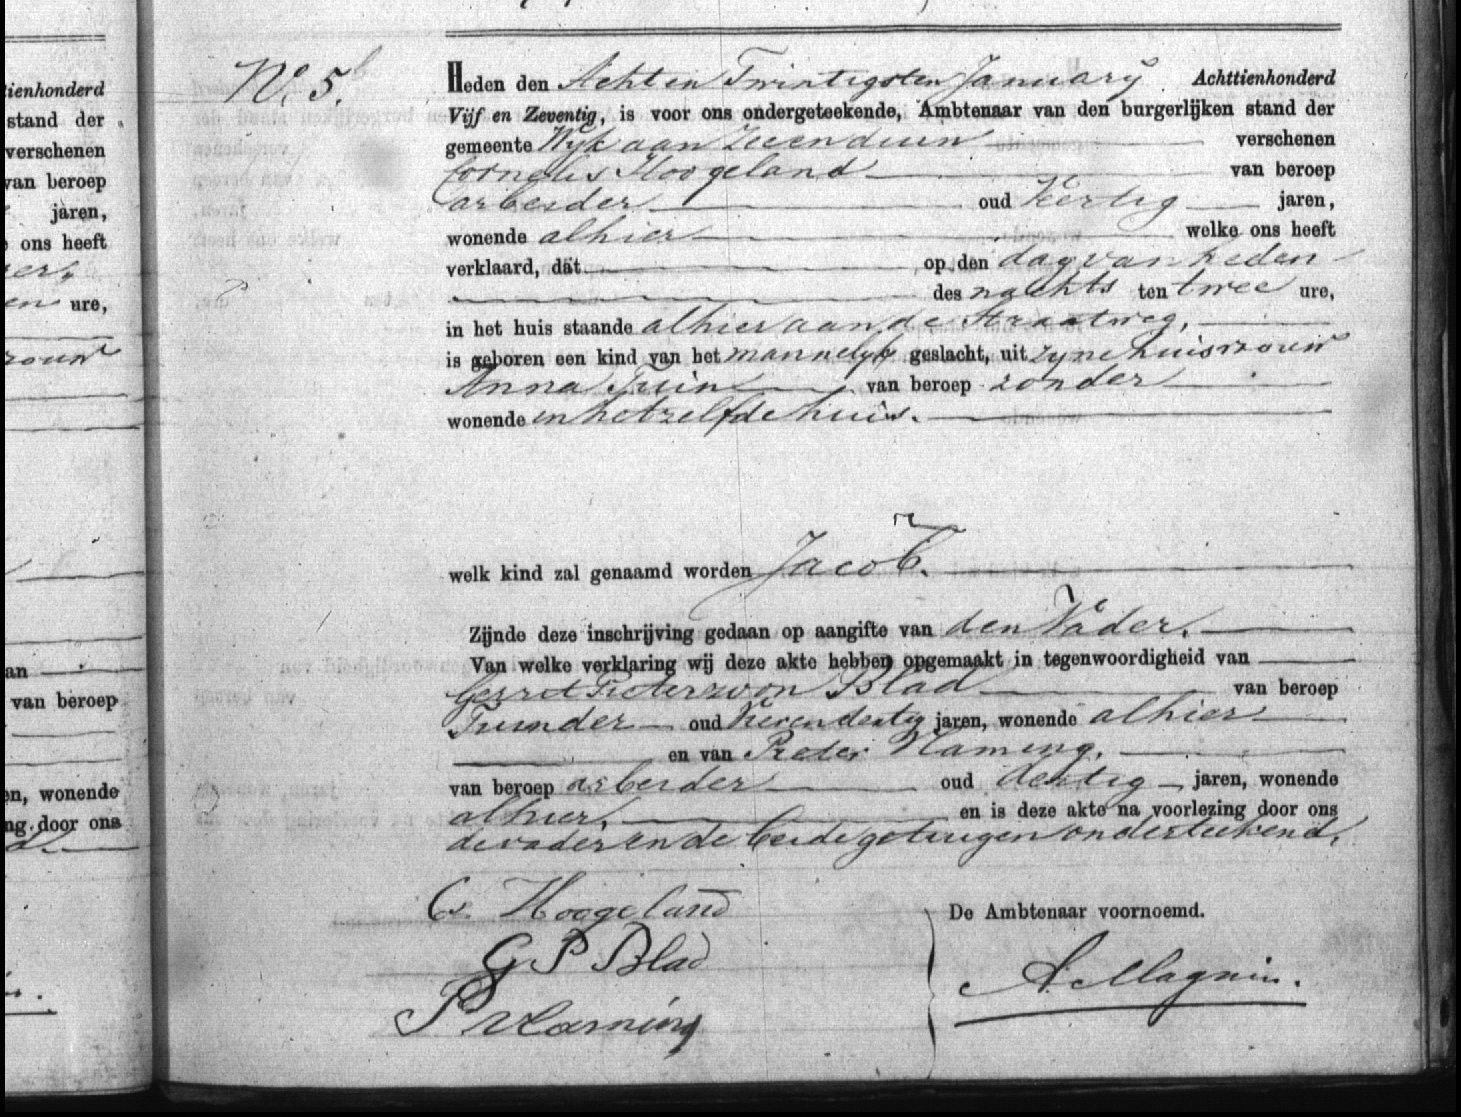 tienhonderd
stand der
verschenen
van beroep
jaren,
ons heeft
ure,
van beroep
en, wonende
ng door ons
No. 5.
Heden den Acht en Twintigsten January Achttienhonderd
Vijf en Zeventig, is voor ons ondergeteekende, Ambtenaar van den burgerlijken stand der
gemeente Wijk aan Zee en duin verschenen
Cornelis Hoogeland van beroep
arbeider oud Veertig jaren,
wonende alhier welke ons heeft
verklaard, dat op den dag van heden
des nachts ten twee ure,
in het huis staande alhier aan de Straatweg,
is geboren een kind van het mannelyk geslacht, uit zyne huisvrouw
Anna Tuin van beroep zonder
wonende in hetzelfde huis.
welk kind zal genaamd worden Jacob.
Zijnde deze inschrijving gedaan op aangifte van den Vader.
Van welke verklaring wij deze akte hebben opgemaakt in tegenwoordigheid van
Gerrit Pieterzoon Blad van beroep
Tuinder oud Vierendertig jaren, wonende alhier
en van Pieter Vlaming,
van beroep arbeider oud dertig jaren, wonende
alhier, en is deze akte na voorlezing door ons
de vader en de beide getuigen onderteekend,
Cs. Hoogeland
De Ambtenaar voornoemd.
G P Blad
A. Magnin.
P vlaming